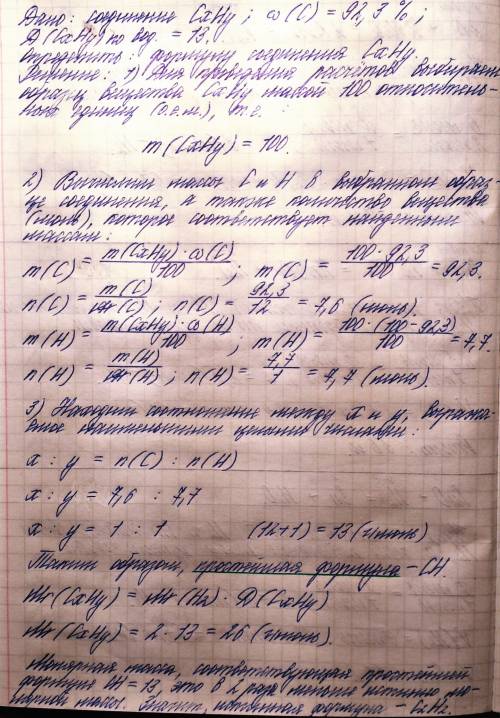 Дано: соединение CxHy; ω(C) = 92,3 %;
D(CxHy) по вод. = 13.
Определить: формулу соединения CxHy.
Решение: 1) Для проведения расчётов выбираем
образец вещества CxHy массой 100 относитель-
ных единиц (о.е.м.), т.е.
m(CxHy) = 100.
2) Вычислим массы C и H в выбранном образ-
це соединения, а также количество вещества
(моль), которое соответствует найденным
массам:
m(C) = m(CxHy)·ω(C) / 100 ; m(C) = 100·92,3 / 100 = 92,3.
n(C) = m(C) / Mr(C) ; n(C) = 92,3 / 12 = 7,6 (моль).
m(H) = m(CxHy)·ω(H) / 100 ; m(H) = 100·(100-92,3) / 100 = 7,7.
n(H) = m(H) / Mr(H) ; n(H) = 7,7 / 1 = 7,7 (моль).
3) Находим соотношение между x и y, выража-
емое наименьшими целыми числами:
x : y = n(C) : n(H)
x : y = 7,6 : 7,7
x : y = 1 : 1 (12+1) = 13 (г/моль)
Таким образом, простейшая формула – CH.
Mr(CxHy) = Mr(H2) · D(CxHy)
Mr(CxHy) = 2 · 13 = 26 (г/моль).
Молярная масса, соответствующая простейшей
формуле CH = 13, это в 2 раза меньше истинно мо-
лярной массы. Значит, истинная формула – C2H2.